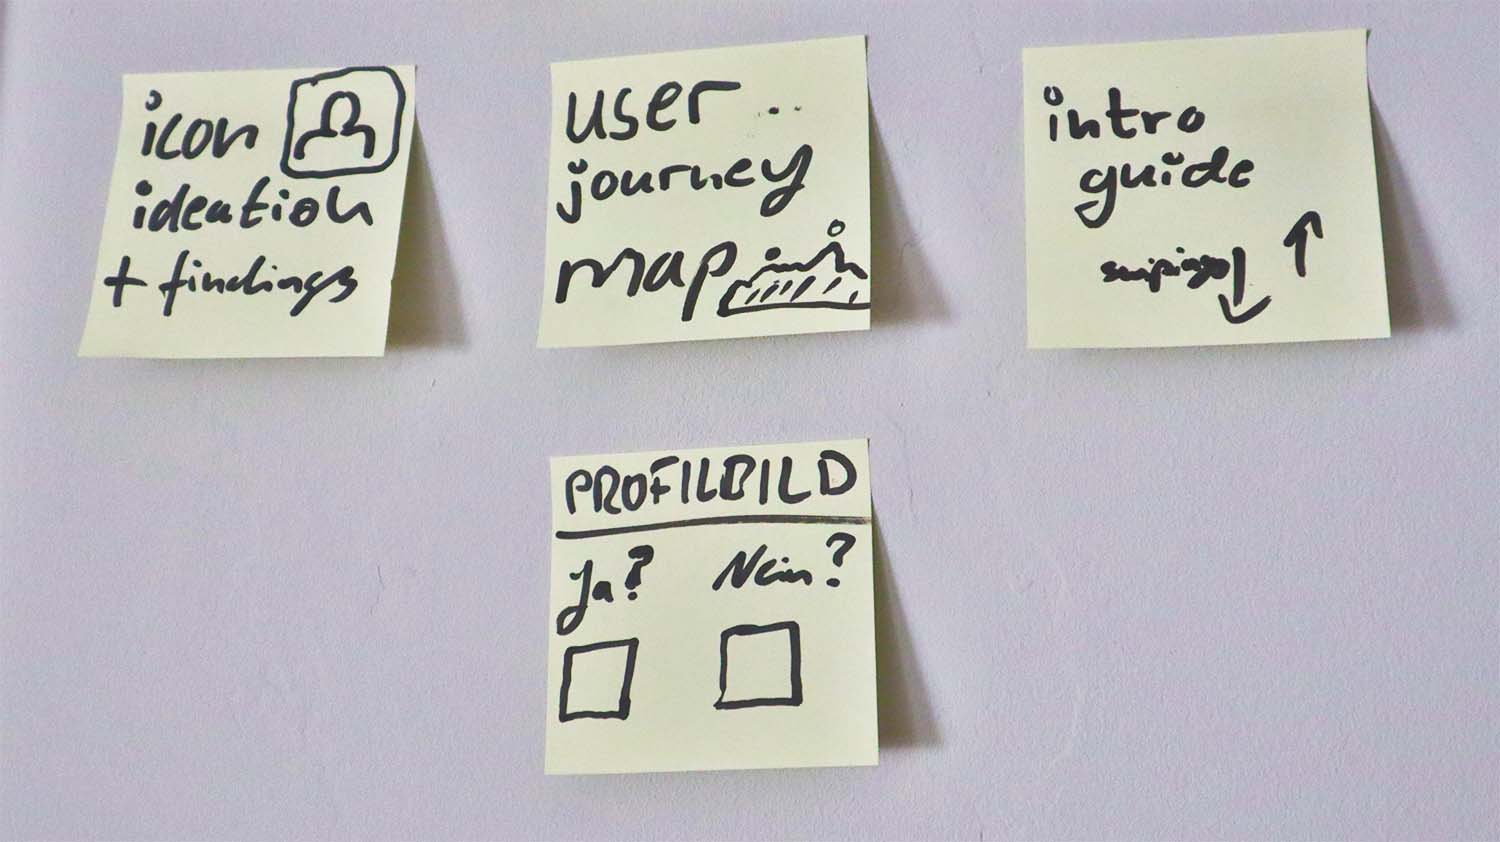 icon
ideation
+ findings
user
journey
map
intro
guide
PROFILBILD
Ja? Nein?